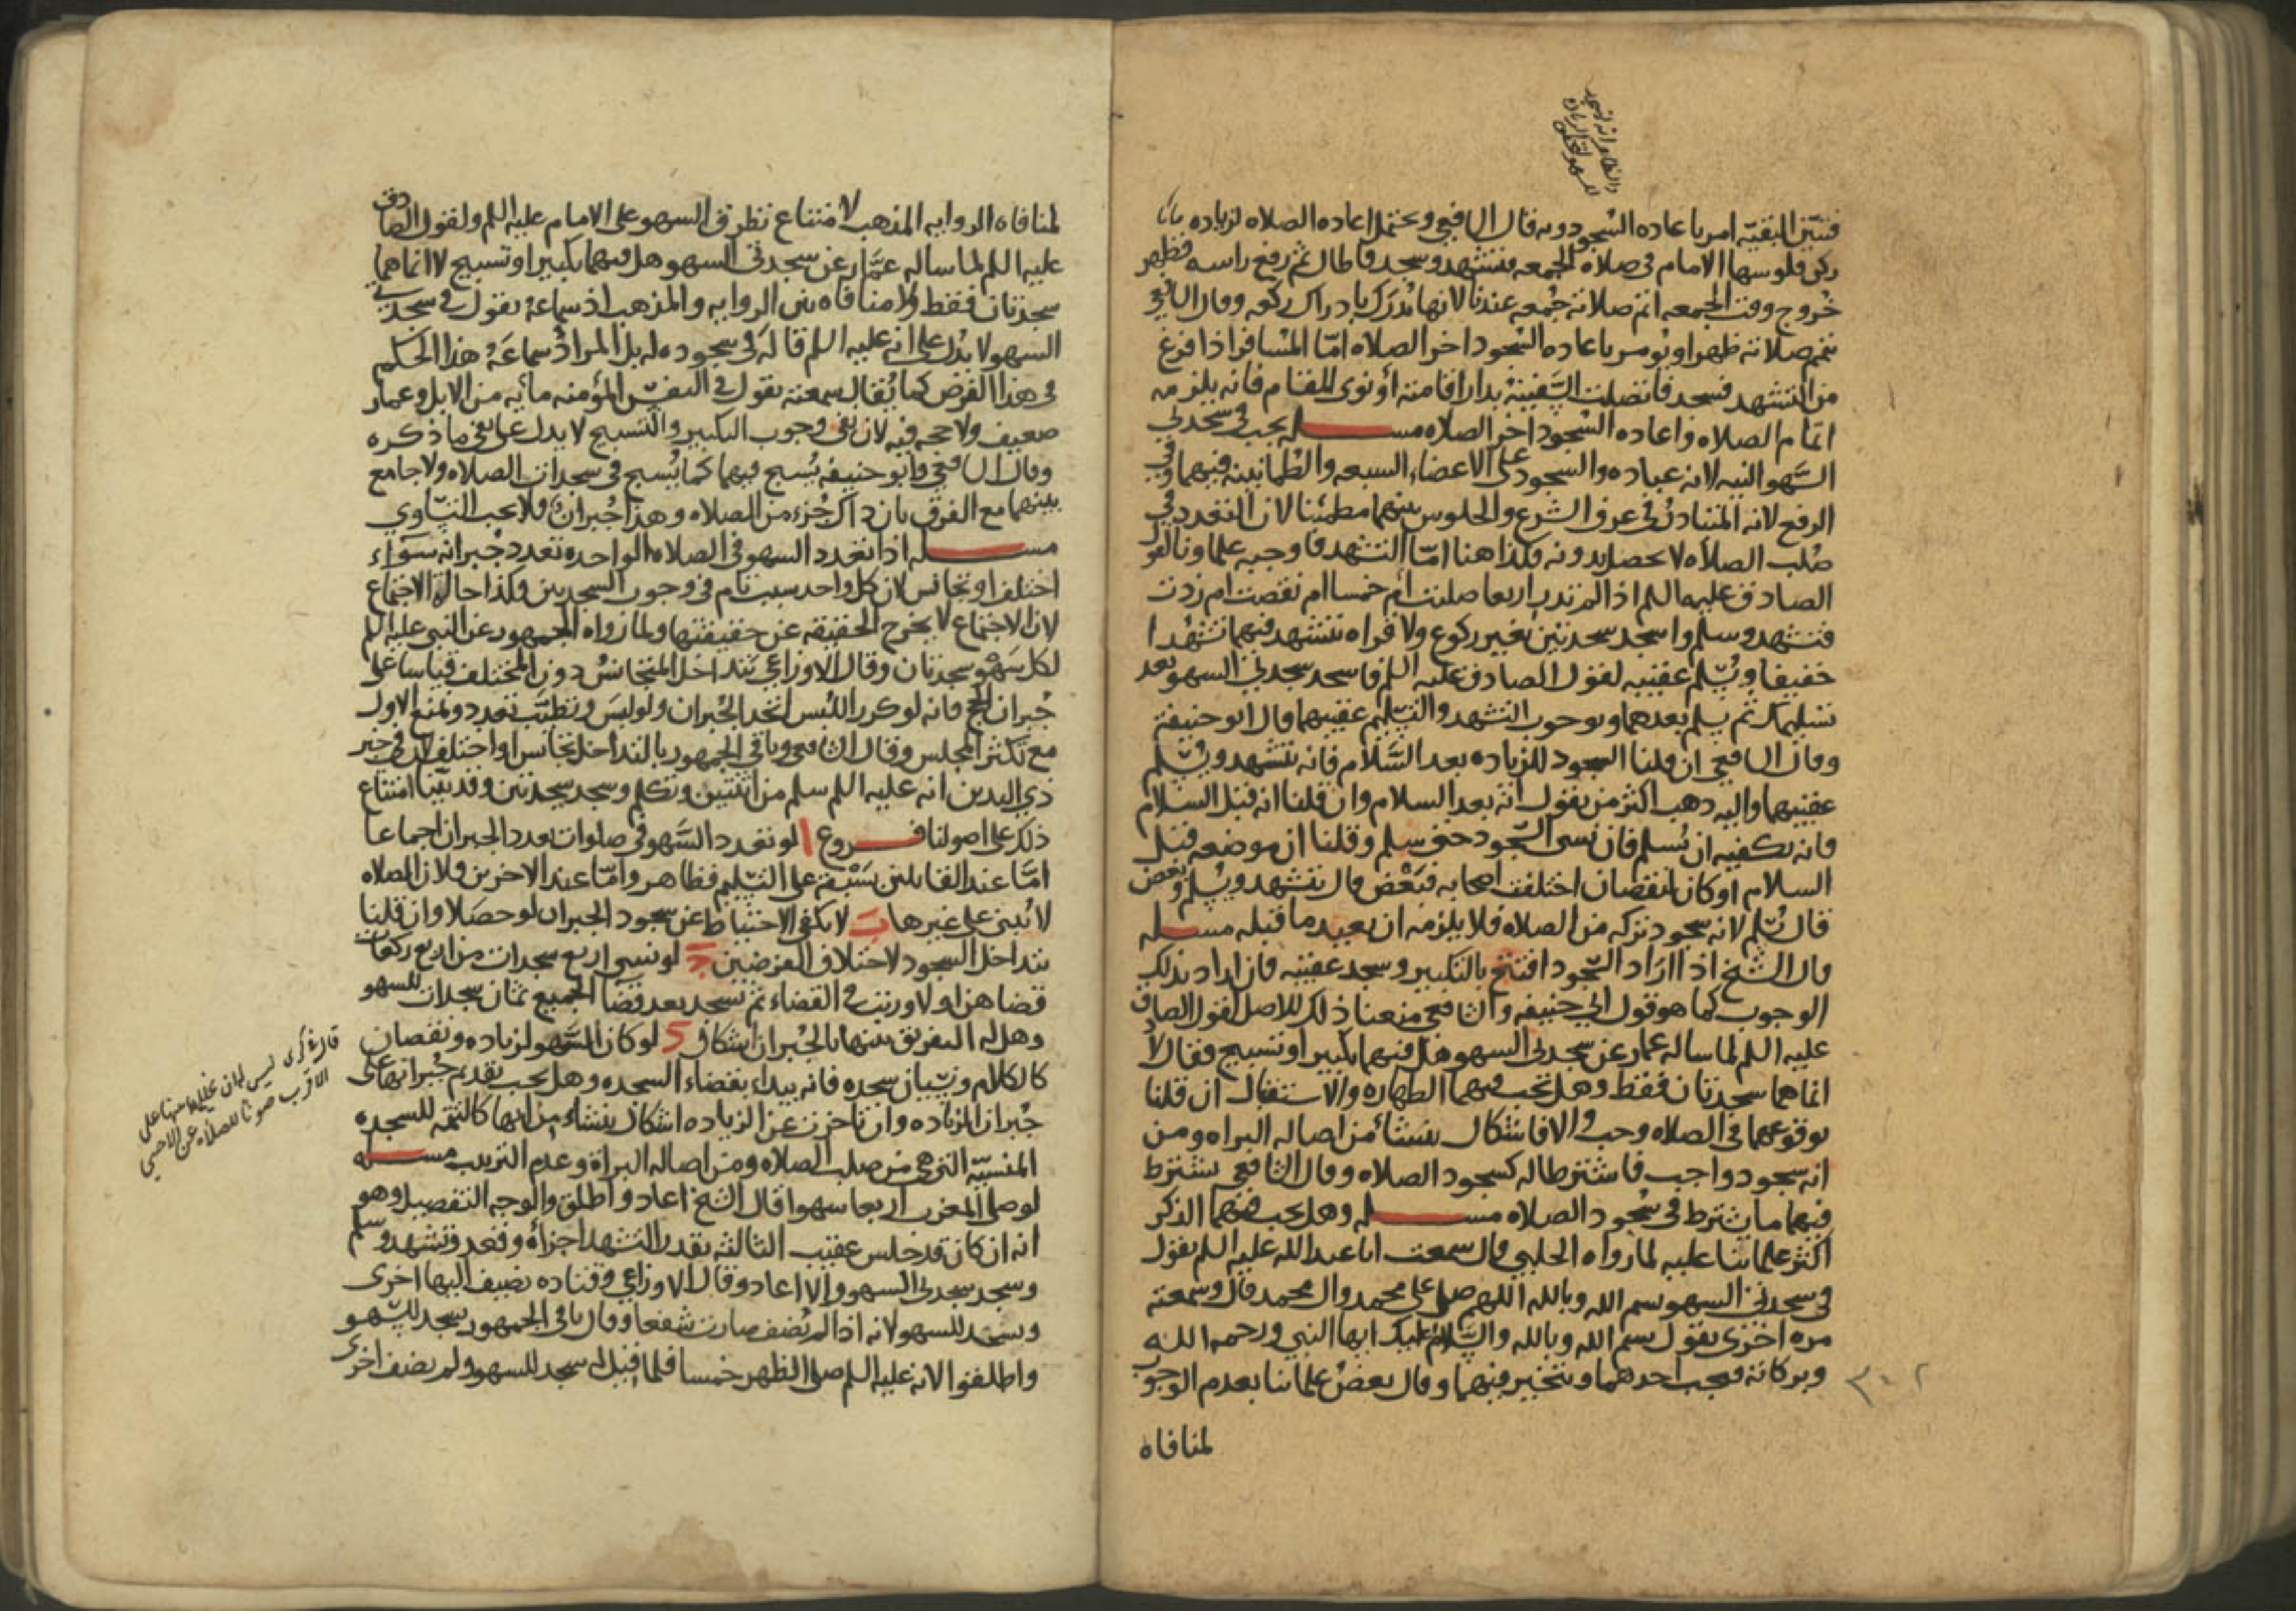 فتبين البقيه امر باعاده السجود وبه قال الشافعي ويحتمل اعاده الصلاه لزياده
ركن فلو سها الامام في صلاه الجمعه فتشهد وسجد فاطال ثم رفع راسه فظهر
خروج وقت الجمعه اتم صلاته جمعه عندنا لانها تدرك بادراك ركعه وقال الشافعي
يتم صلاته ظهرا ويومر باعاده السجود اخر الصلاه امّا المسافر اذا فرغ
من التشهد فسجد فاتصلت السّفينة بدار اقامته أو نوى المقام فانه يلزمه
اتمام الصلاه واعاده السجود اخر الصلاه مسله يجب في سجدتي
السّهو النيه لانه عباده والسجود على الاعضاء السبعه والطمانينه فيهما وفي
الرفع لانه المتبادر في عرف الشرع والجلوس بينهما مطمئنا لان التعدد في
صلب الصلاه لا يحصل بدونه فكذا هنا امّا التشهد فاوجبه علماونا لقول
الصادق عليه السلم اذا لم تدر اربعا صليت أم خمسا ام نقصت ام زدت
فتشهد وسلم واسجد سجدتين بغير ركوع ولا قراه تتشهد فيهما تشهدا
خفيفا ويسلم عقيبه لقول الصادق عليه السلم فاسجد سجدتي السهو بعد
تسليمك ثم سلم بعدهما وبوجوب التشهد والتسليم عقيبهما قال ابو حنيفة
وقال الشافعي ان قلنا السجود للزياده بعد السّلام فانه يتشهد ويسلم
عقيبهما واليه ذهب اكثر من يقول انه بعد السلام وان قلنا انه قبل السلام
فانه يكفيه ان يسلم فان نسى السجود حتى سلم وقلنا ان موضعه قبل
السلام او كان لنقصان اختلفت اصحابه فبعض قال يتشهد ويسلم وبعض
قال يسلم لانه سجود تركه من الصلاه فلا يلزمه ان يعيد ما قبله مسله
قال الشيخ اذا اراد السجود افتتح بالتكبير وسجد عقيبه فان اراد بذلك
الوجوب كما هو قول ابي حنيفه والشافعي منعنا ذلك للاصل لقول الصادق
عليه السلم لما ساله عمار عن سجدتي السهو هل فيهما تكبير او تسبيح فقال لا
انما هما سجدتان فقط وهل تجب فيهما الطهاره والاستقبال ان قلنا
بوقوعهما في الصلاه وجب والا فاشكال ينشأ من اصاله البراه ومن
انه سجود واجب فاشترطا له كسجود الصلاه وقال الشافعي يشترط
فيهما ما يشترط في سجود الصلاه مسله وهل يجب فيهما الذكر
اكثر علمائنا عليه لما رواه الحلبي قال سمعت ابا عبد الله عليه السلم يقول
في سجدتي السهو بسم الله وبالله اللهم صل على محمد وال محمد قال وسمعته
مره اخرى يقول بسم الله وبالله والسّلام عليك ايها النبي ورحمه الله
وبركاته فيجب احدهما ويتخير فيهما وقال بعض علمائنا بعدم الوجوب
لمنافاه
لمنافاه الروايه المذهب لامتناع تطرق السهو على الامام عليه السلم ولقول الصادق
عليه السلم لما ساله عمّار عن سجدتي السهو هل فيهما تكبير او تسبيح لا انما هما
سجدتان فقط ولا منافاه بين الروايه والمذهب اذ سماعه يقول في سجدتي
السهو لا يدل على انه عليه السلم قاله في سجوده له بل المراد سماعه هذا الحكم
في هذا الفرض كما يقال سمعته يقول في النفس المؤمنه مائه من الابل وعمار
ضعيف ولا حجه فيه لان نفي وجوب التكبير والتسبيح لا يدل على نفي ما ذكره
وقال الشافعي وابو حنيفه يسبح فيهما كما يسبح في سجدات الصلاه ولا جامع
بينهما مع الفرق بان ذاك جزء من الصلاه وهذا جبران فلا يجب التساوي
مسله اذا تعدد السهو في الصلاه الواحده تعدد جبرانه سواء
اختلف او تجانس لان كل واحد سبب تام في وجوب السجدتين فكذا حاله الاجتماع
لان الاجتماع لا يخرج الحقيقه عن حقيقتها ولما رواه الجمهور عن النبي عليه السلم
لكل سهو سجدتان وقال الاوزاعي يتداخل المتجانس دون المختلف قياسا على
جبران الحج فانه لو كرر اللبس اتحد الجبران ولو لبس وتطيّب تعدد ونمنع الاول
مع تكثر المجلس وقال الشافعي وباقي الجمهور بالتداخل تجانس او اختلف لان في خبر
ذي اليدين انه عليه السلم سلم من اثنتين وتكلم وسجد سجدتين وقد بيّنا امتناع
ذلك على اصولنا فروع ا لو تعدد السّهو في صلوات تعدد الجبران اجماعا
امّا عند القائلين بسبقه على التسليم فظاهر وامّا عند الاخرين فلان الصلاه
لا تبنى على غيرها ب لا يكفي الاحتياط عن سجود الجبران لو حصلا وان قلنا
بتداخل السجود لاختلاف الغرضين ج لو نسى اربع سجدات من اربع ركعات
قضاهن اولا ورتب في القضاء ثم سجد بعد قضا الجميع ثمان سجدات للسهو
وهل له التفريق بينها بالجبران اشكال د لو كان السّهو لزياده ونقصان
كالكلام ونسيان سجده فانه يبداء بقضاء السجده وهل يجب تقديم جبرانها على
جبران الزياده وان تاخرت عن الزياده اشكال ينشاء من انها كالتتمه للسجده
المنسيّه التي هي من صلب الصلاه ومن اصاله البراة وعدم الترتيب مسله
لو صلى المغرب اربعا سهوا قال الشيخ اعاد واطلق والوجه التفصيل وهو
انه ان كان قد جلس عقيب الثالثه بقدر التشهد اجزأه وقعد وتشهد وسلم
وسجد سجدتي السهو والا اعاد وقال الاوزاعي وقتاده يضيف اليها اخرى
ويسجد للسهو لانه اذا لم يضف صارت شفعا وقال باقي الجمهور يسجد للسهو
واطلقوا لانه عليه السلم صلى الظهر خمسا فلما قيل له سجد للسهو ولم يضف اخرى